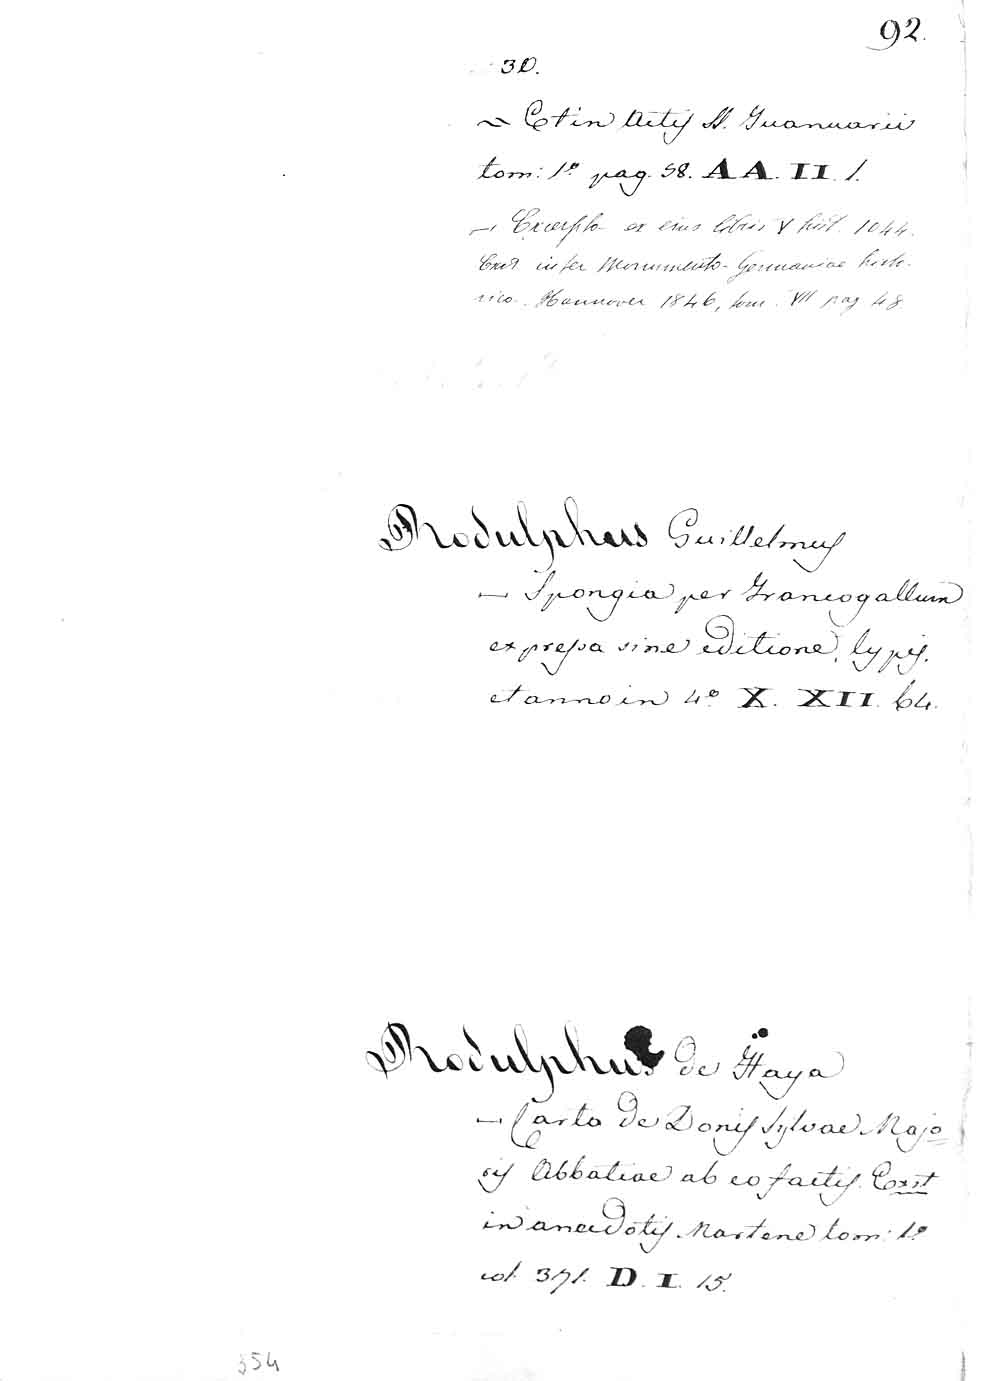 92.
30.
~ Et in Actis SS. Januarii
tom: 1º pag. 58. AA. II. 1.
— Excerpta ex ejus libris V hist. 1044.
Exst. inter Monumenta Germaniae histo-
rica. Hannover 1846, tom. VII pag 48.
Rodulphus Guillelmus
— Spongia per Francogallum
expressa sine editione, typis.
et anno in 4º X. XII. 64.
Rodulphus de Haya
— Carta de Donis Sylvae Majo
ris Abbatiae ab eo factis. Exst
in anecdotis Martene tom: 1º
col. 371. D. I. 15.
354